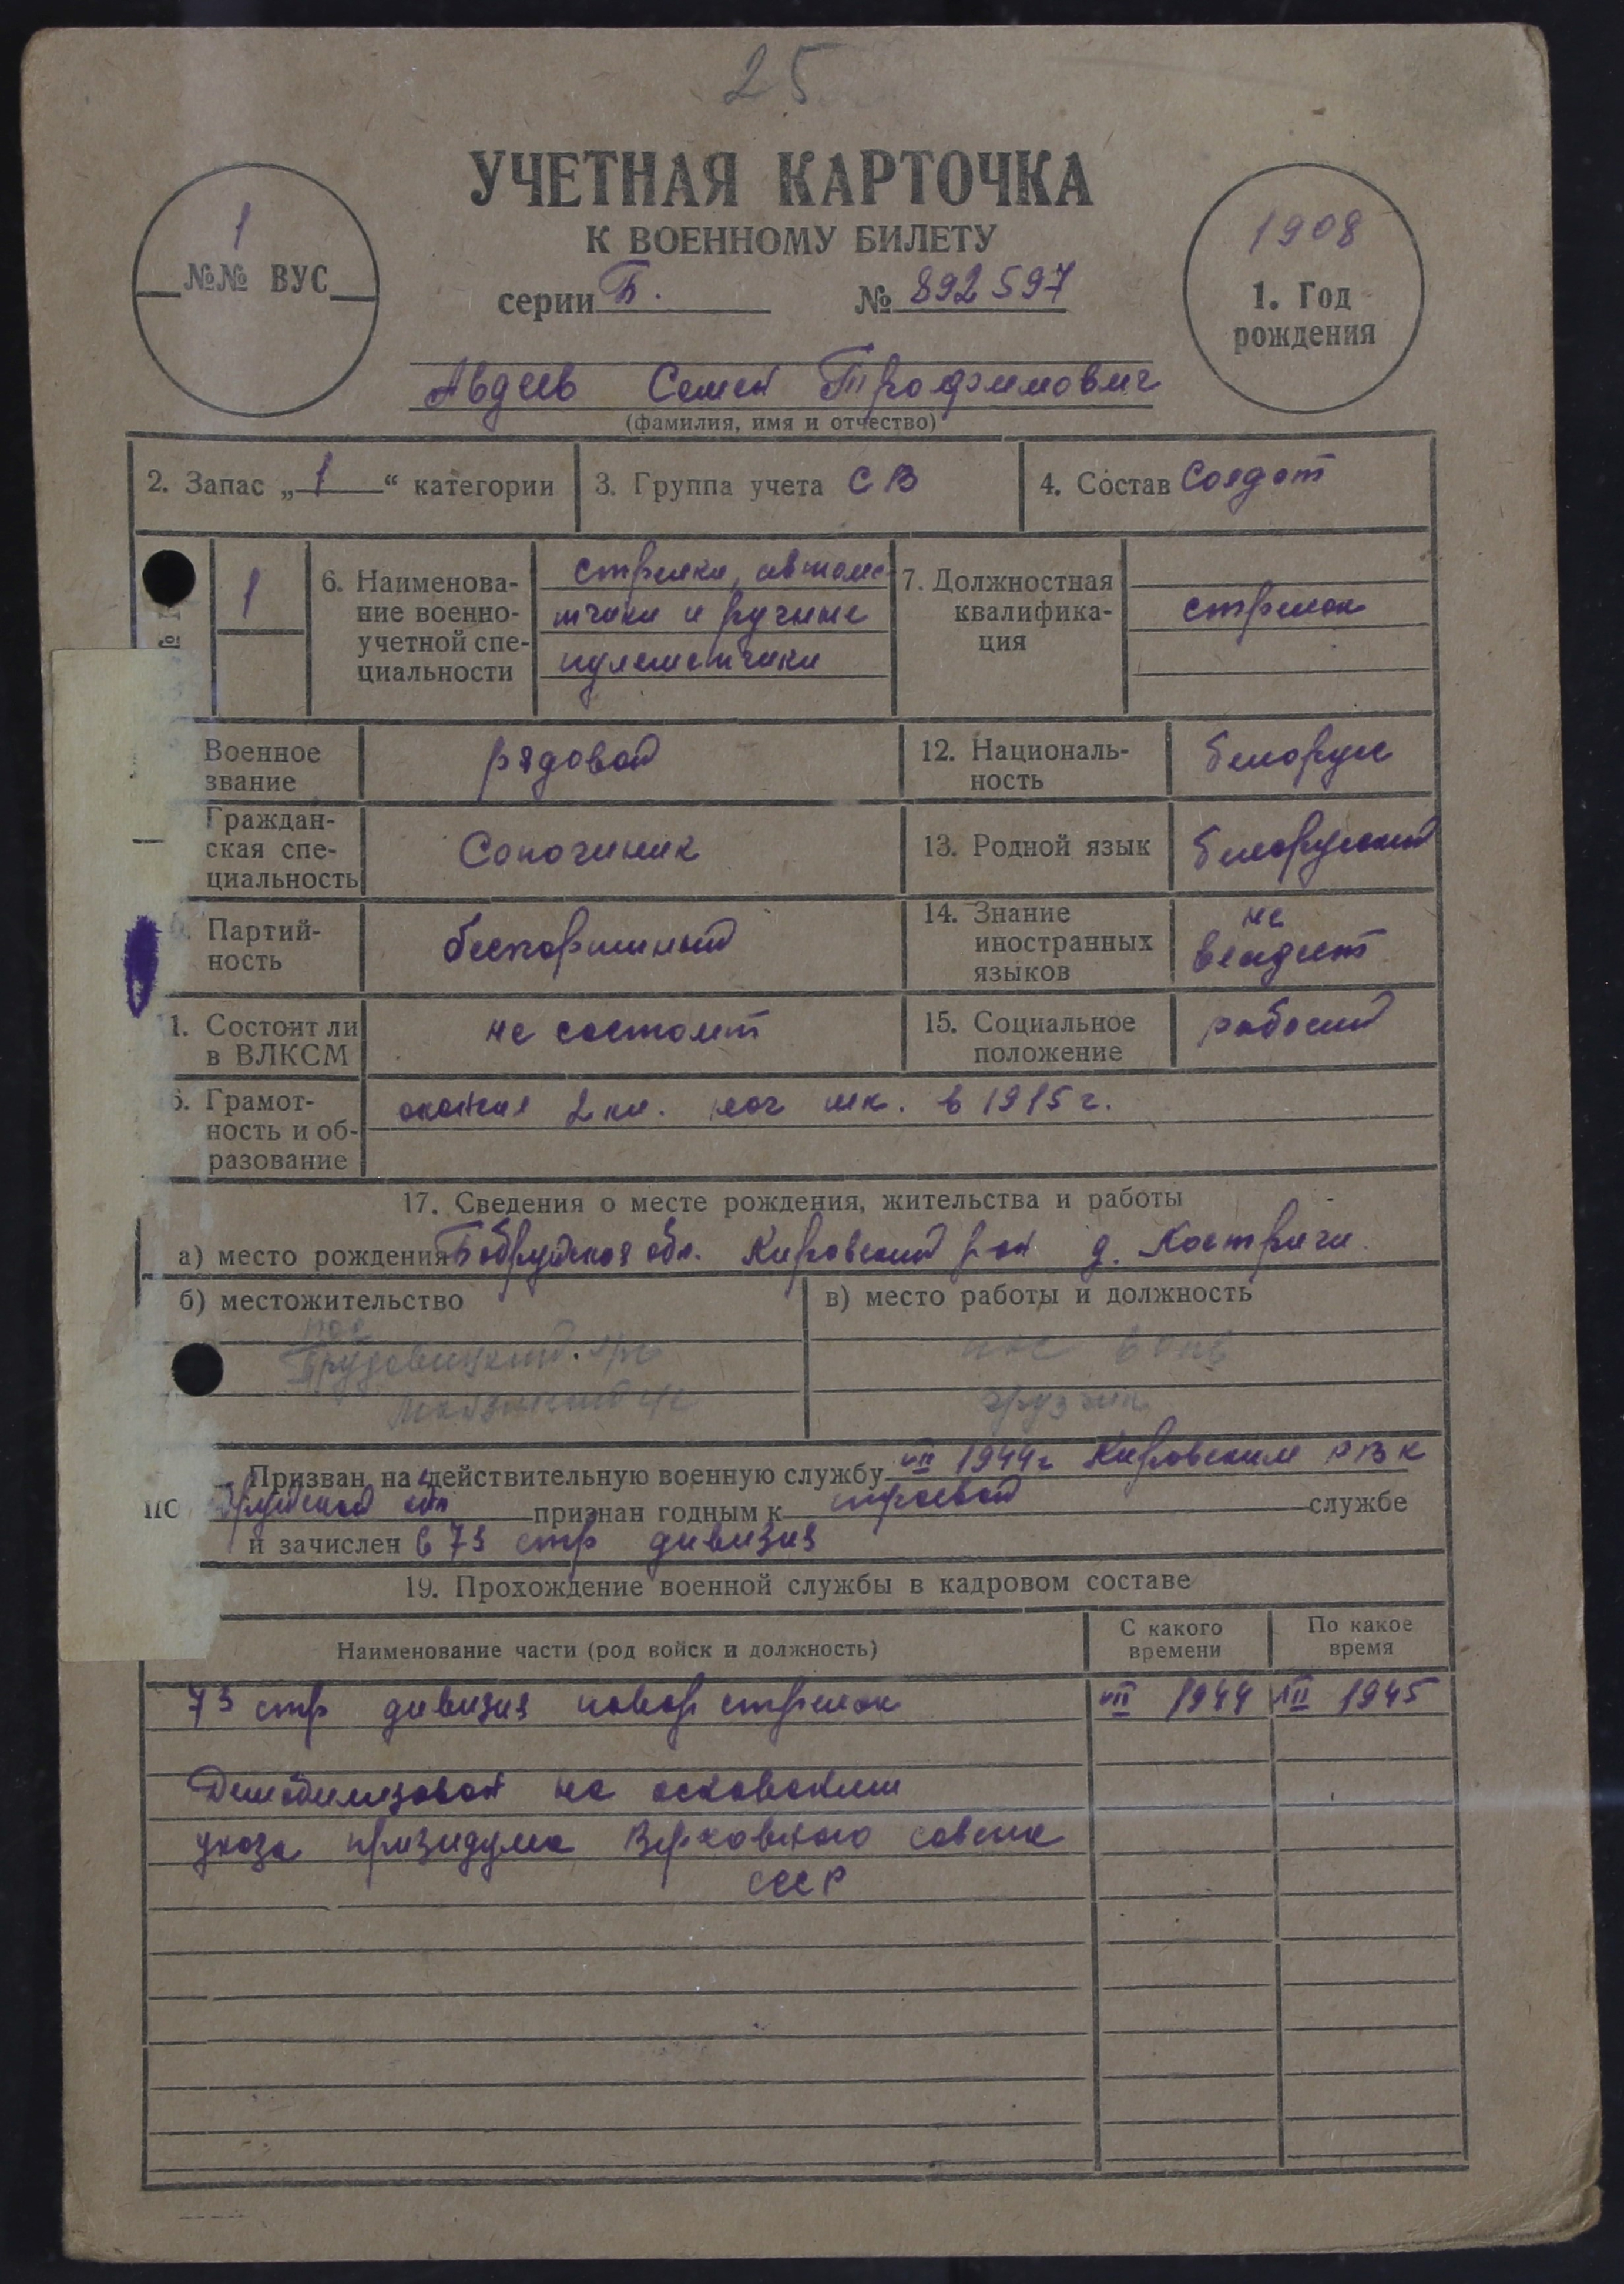 25
УЧЕТНАЯ КАРТОЧКА
К ВОЕННОМУ БИЛЕТУ
серии Б. № 892597
1
№№ ВУС
1908
1. Год
рождения
Авдеев Семен Трофимович
(фамилия, имя и отчество)
2. Запас „1“ категории
3. Группа учета СВ
4. Состав Солдат
1
6. Наименова-
ние военно-
учетной спе-
циальности
стрелки, автома
тчики и ручные
пулеметчики
7. Должностная
квалифика-
ция
стрелок
Военное
звание
рядовой
12. Националь-
ность
белорус
Граждан-
ская спе-
циальность
Сапожник
13. Родной язык
белорусский
Партий-
ность
беспартийный
14. Знание
иностранных
языков
не
владеет
1. Состоит ли
в ВЛКСМ
не состоит
15. Социальное
положение
рабочий
6. Грамот-
ность и об-
разование
окончил 2 кл. нач шк. в 1915 г.
17. Сведения о месте рождения, жительства и работы
а) место рождения Бобруйская обл. Кировский р-он д. Костричи
б) местожительство
в) место работы и должность
грузчик
Призван на действительную военную службу VII 1944г Кировским РВК
обл признан годным к строевой службе
и зачислен в 73 стр дивизия
19. Прохождение военной службы в кадровом составе
Наименование части (род войск и должность)
С какого
времени
По какое
время
73 стр дивизия стрелок VII 1944 1945
Демобилизован на основании
указа призидума Верховного совета
СССР